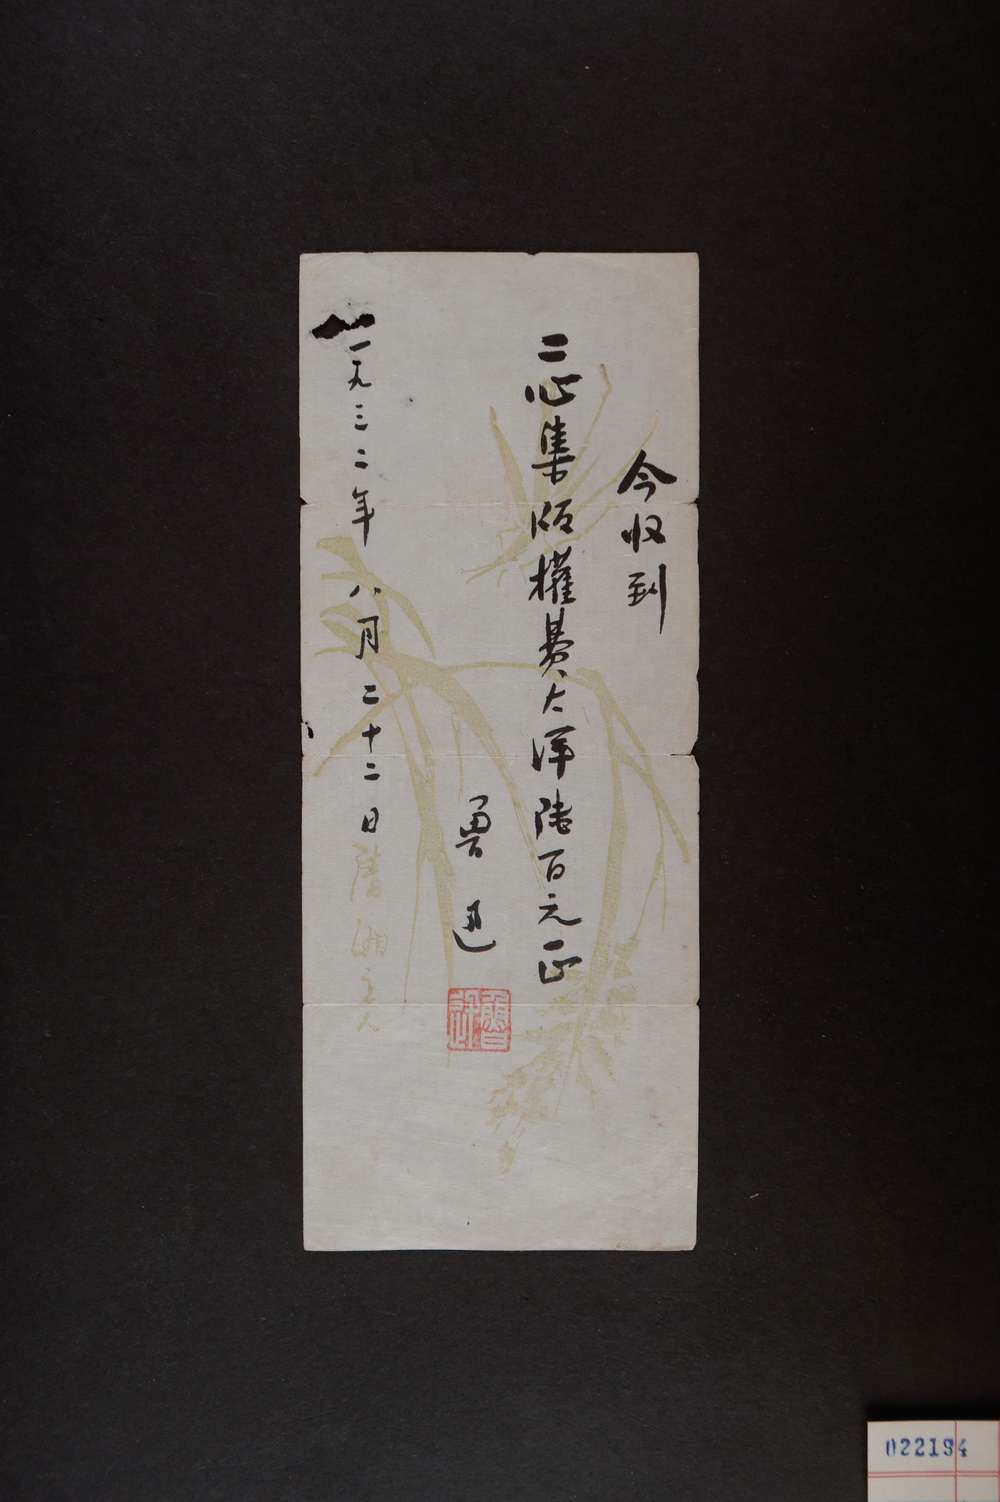 今收到
二心集版權費大洋陸百元正
魯迅
魯迅
一九三二年 八月二十二日
022194